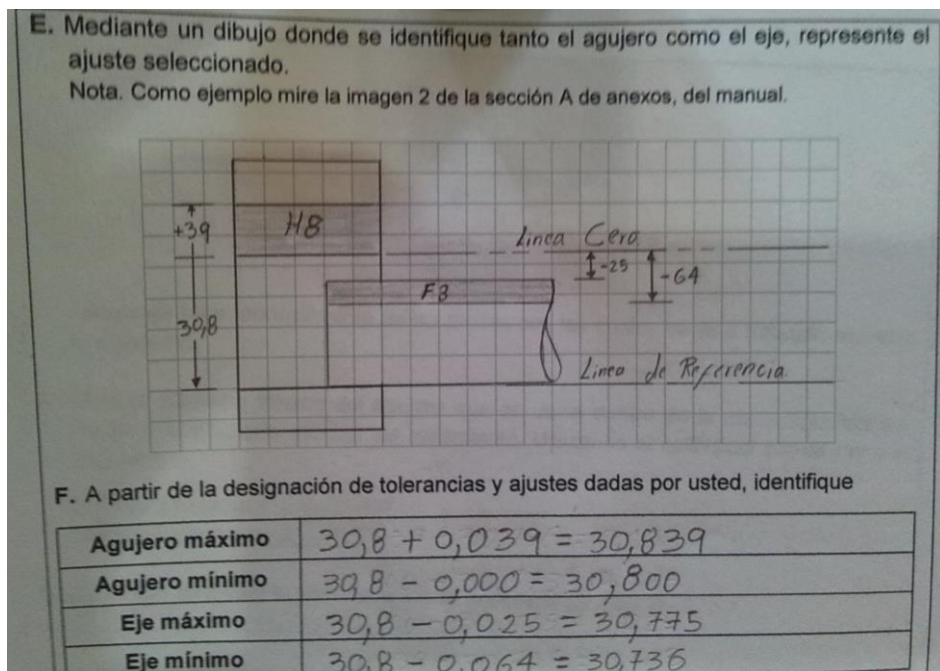 E. Mediante un dibujo donde se identifique tanto el agujero como el eje, represente el
ajuste seleccionado.
Nota. Como ejemplo mire la imagen 2 de la sección A de anexos, del manual.
+39
H8
Linea Cero
-25
-64
F8
30,8
Linea de Referencia
F. A partir de la designación de tolerancias y ajustes dadas por usted, identifique
Agujero máximo 30,8 + 0,039 = 30,839
Agujero mínimo 30,8 - 0,000 = 30,800
Eje máximo 30,8 - 0,025 = 30,775
Eje mínimo 30,8 - 0,064 = 30,736